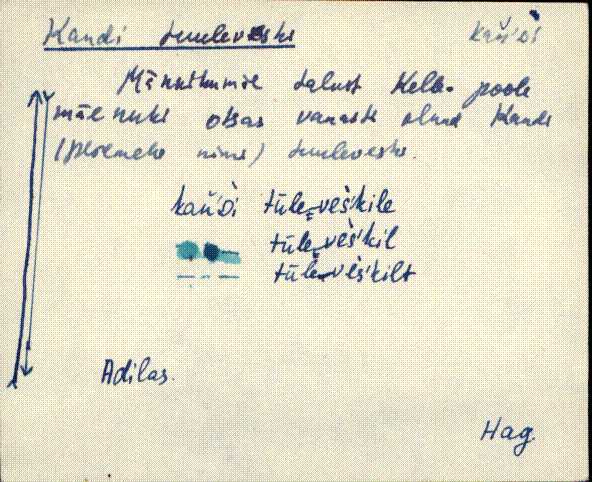 Kandi tuuleveski kań'di
Männikumäe talust Keila poole
mäe nuki otsas vanasti olnud Kandi
(peremehe nimi) tuuleveski.
kań'di tūle-veš'kile
tūle-veš'kil
— " — tūle-veš'kilt
Adilas.
Hag.